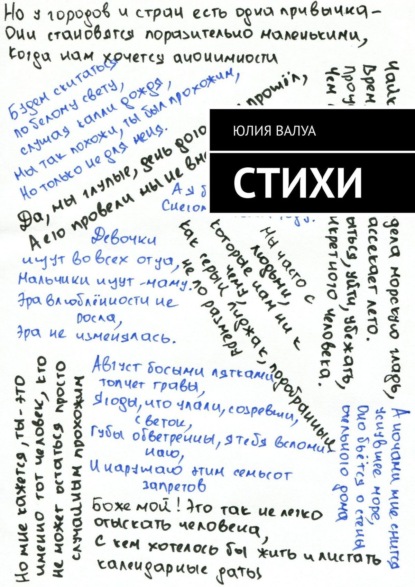 Но у городов и стран есть одна привычка –
Они становятся поразительно маленькими,
Когда нам хочется анонимности
Будем скитаться
по белому свету,
слушая капли дождя,
Мы так похожи, ты был прохожим,
Но только не для меня.
Да, мы глупые, день дого
прошёл,
А его провели мы не вм
ЮЛИЯ ВАЛУА
СТИХИ
Чайк
дела морскую гладь,
Врем
ассекает лето.
Проу
ыться, уйти, убежать,
Чем
кретного человека.
А я б
Снегом
году.
Мы часто с
людьми,
которые нам ни к
чему,
как серый пиджак, подобранный
не по размеру
Девочки
ищут во всех отца,
Мальчики ищут – маму.
Эра влюблённости не
росла,
Эра не изменялась.
Август босыми пятками
топчет травы,
Ягоды, что упали, созревши,
с веток,
Губы обветренны, я тебя вспоми
наю,
И нарушаю этим семьсот
запретов
А ночами мне снится
уснувшее море,
Оно бьётся о стены
очельного дома
Но мне кажется, ты – это
именно тот человек, кто
не может остаться просто
случайным прохожим
Боже мой! Это так не легко
отыскать человека,
С кем хотелось бы жить и листать
календарные даты